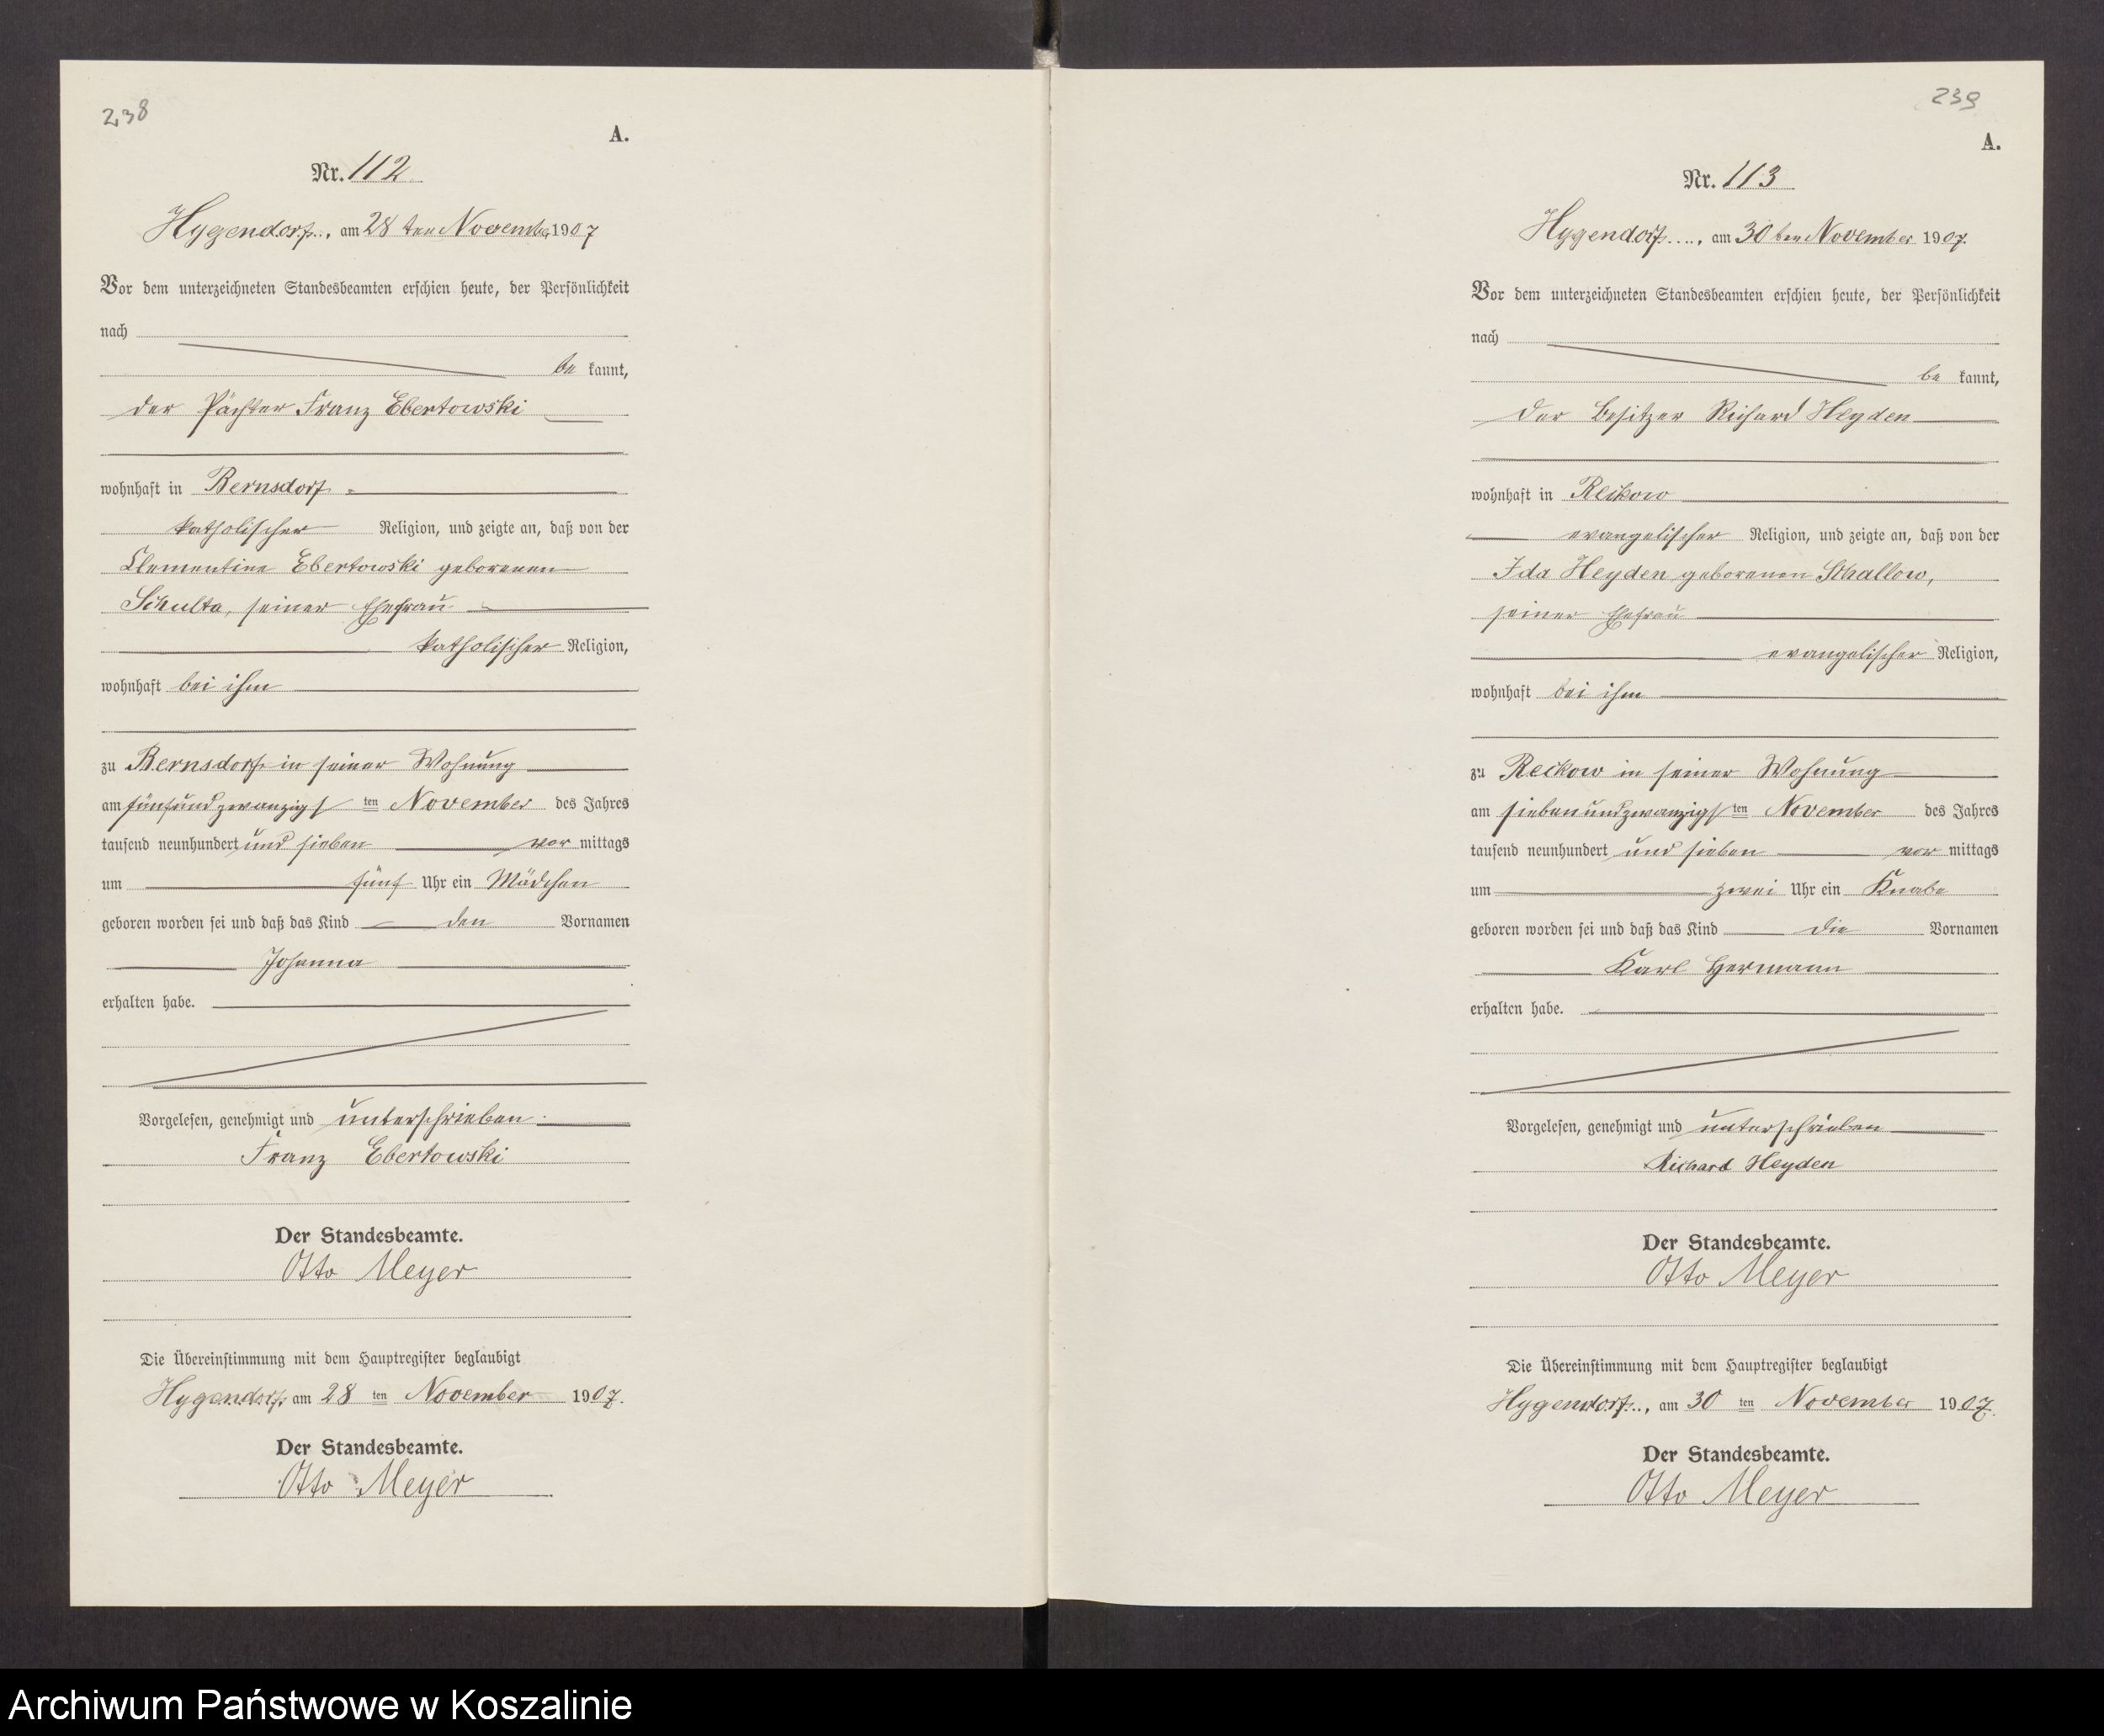 238
A.
Nr. 112
Hygendorf, am 28 ten November 1907
Vor dem unterzeichneten Standesbeamten erschien heute, der Persönlichkeit
nach
be kannt,
der Pächter Franz Ebertowski
wohnhaft in Bernsdorf
katholischer Religion, und zeigte an, daß von der
Clementine Ebertowski geborenen
Schulta, seiner Ehefrau
katholischer Religion,
wohnhaft bei ihm
zu Bernsdorf in seiner Wohnung
am fünfundzwanzigs ten November des Jahres
tausend neunhundert und sieben vor mittags
um fünf Uhr ein Mädchen
geboren worden sei und daß das Kind den Vornamen
Johanna
erhalten habe.
Vorgelesen, genehmigt und unterschrieben
Franz Ebertowski
Der Standesbeamte.
Otto Meyer
Die Übereinstimmung mit dem Hauptregister beglaubigt
Hygendorf, am 28 ten November 1907.
Der Standesbeamte.
Otto Meyer
239
A.
Nr. 113
Hygendorf, am 30 ten November 1907.
Vor dem unterzeichneten Standesbeamten erschien heute, der Persönlichkeit
nach
be kannt,
der Besitzer Richard Heyden
wohnhaft in Reckow
evangelischer Religion, und zeigte an, daß von der
Ida Heyden geborenen Schallow,
seiner Ehefrau
evangelischer Religion,
wohnhaft bei ihm
zu Reckow in seiner Wohnung
am siebenundzwanzigs ten November des Jahres
tausend neunhundert und sieben vor mittags
um zwei Uhr ein Knabe
geboren worden sei und daß das Kind die Vornamen
Karl Hermann
erhalten habe.
Vorgelesen, genehmigt und unterschrieben
Richard Heyden
Der Standesbeamte.
Otto Meyer
Die Übereinstimmung mit dem Hauptregister beglaubigt
Hygendorf, am 30 ten November 1907.
Der Standesbeamte.
Otto Meyer
Archiwum Państwowe w Koszalinie